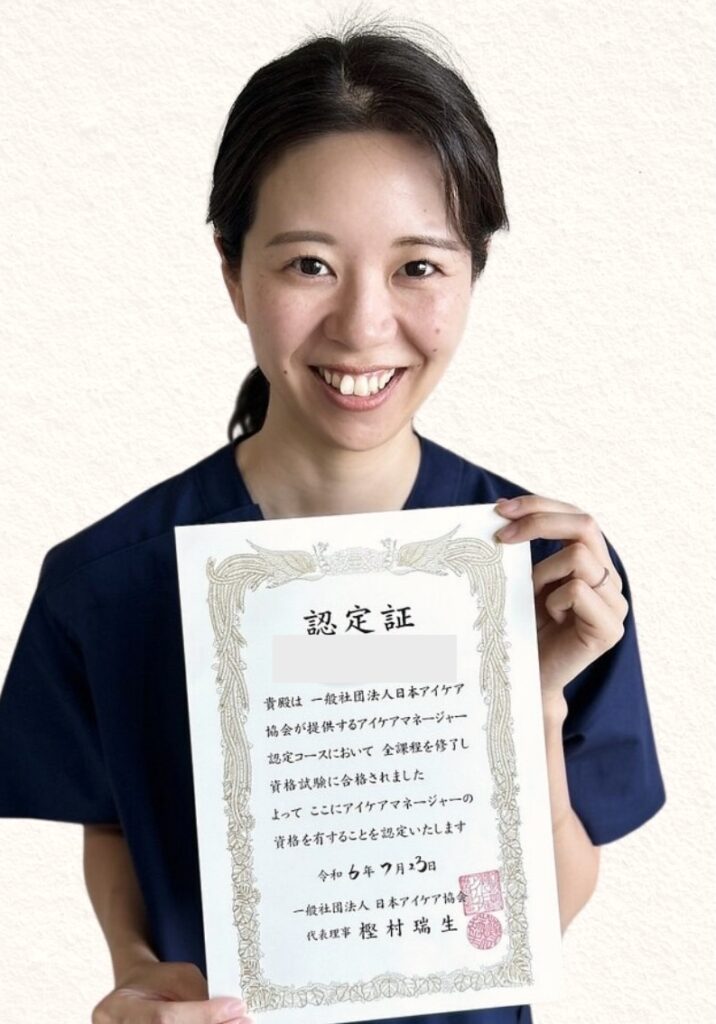 認定証
貴殿は 一般社団法人日本アイケア
協会が提供するアイケアマネージャー
認定コースにおいて 全課程を修了し
資格試験に合格されました
よって ここにアイケアマネージャーの
資格を有することを認定いたします
令和6年7月23日
一般社団法人 日本アイケア協会
代表理事 樫村瑞生